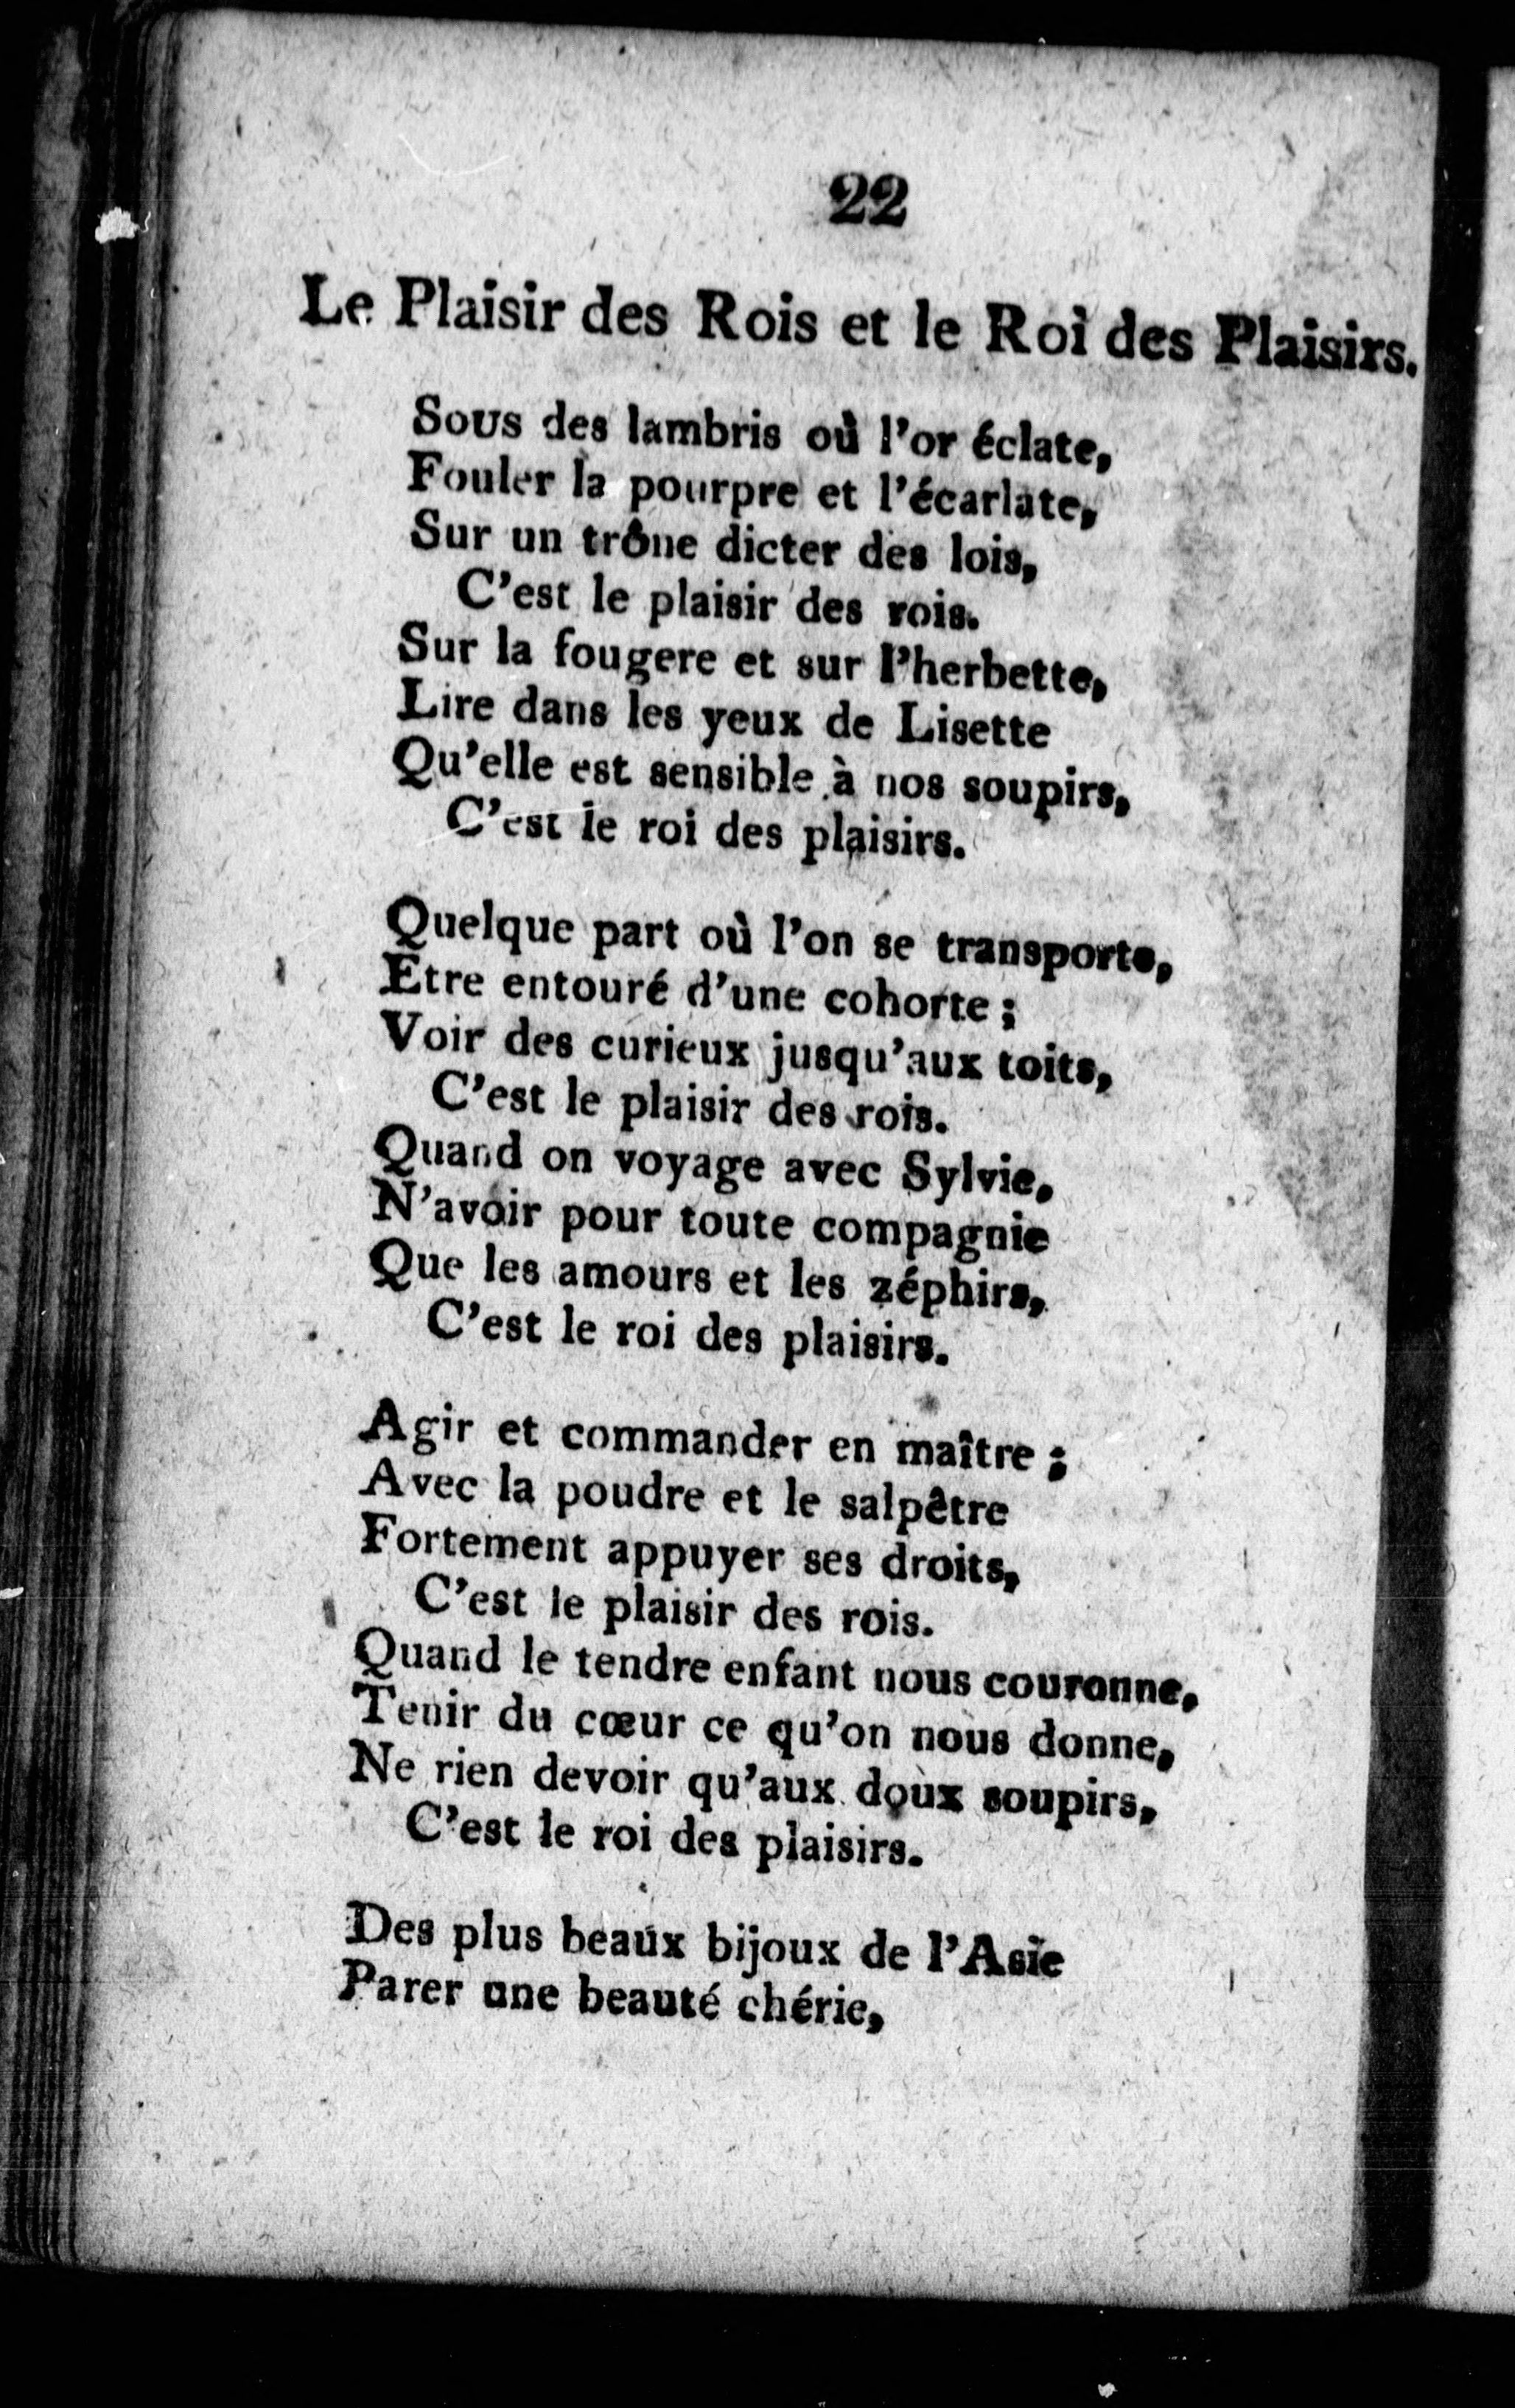 22
Le Plaisir des Rois et le Roi des Plaisirs.
Sous des lambris où l'or éclate,
Fouler la pourpre et l'écarlate,
Sur un trône dicter des lois,
C'est le plaisir des rois.
Sur la fougere et sur l'herbette,
Lire dans les yeux de Lisette
Qu'elle est sensible à nos soupirs,
C'est le roi des plaisirs.
Quelque part où l'on se transporte,
Etre entouré d'une cohorte ;
Voir des curieux jusqu'aux toits,
C'est le plaisir des rois.
Quand on voyage avec Sylvie,
N'avoir pour toute compagnie
Que les amours et les zéphirs,
C'est le roi des plaisirs.
Agir et commander en maître ;
Avec la poudre et le salpêtre
Fortement appuyer ses droits,
C'est le plaisir des rois.
Quand le tendre enfant nous couronne,
Tenir du cœur ce qu'on nous donne,
Ne rien devoir qu'aux doux soupirs,
C'est le roi des plaisirs.
Des plus beaux bijoux de l'Asie
Parer une beauté chérie,